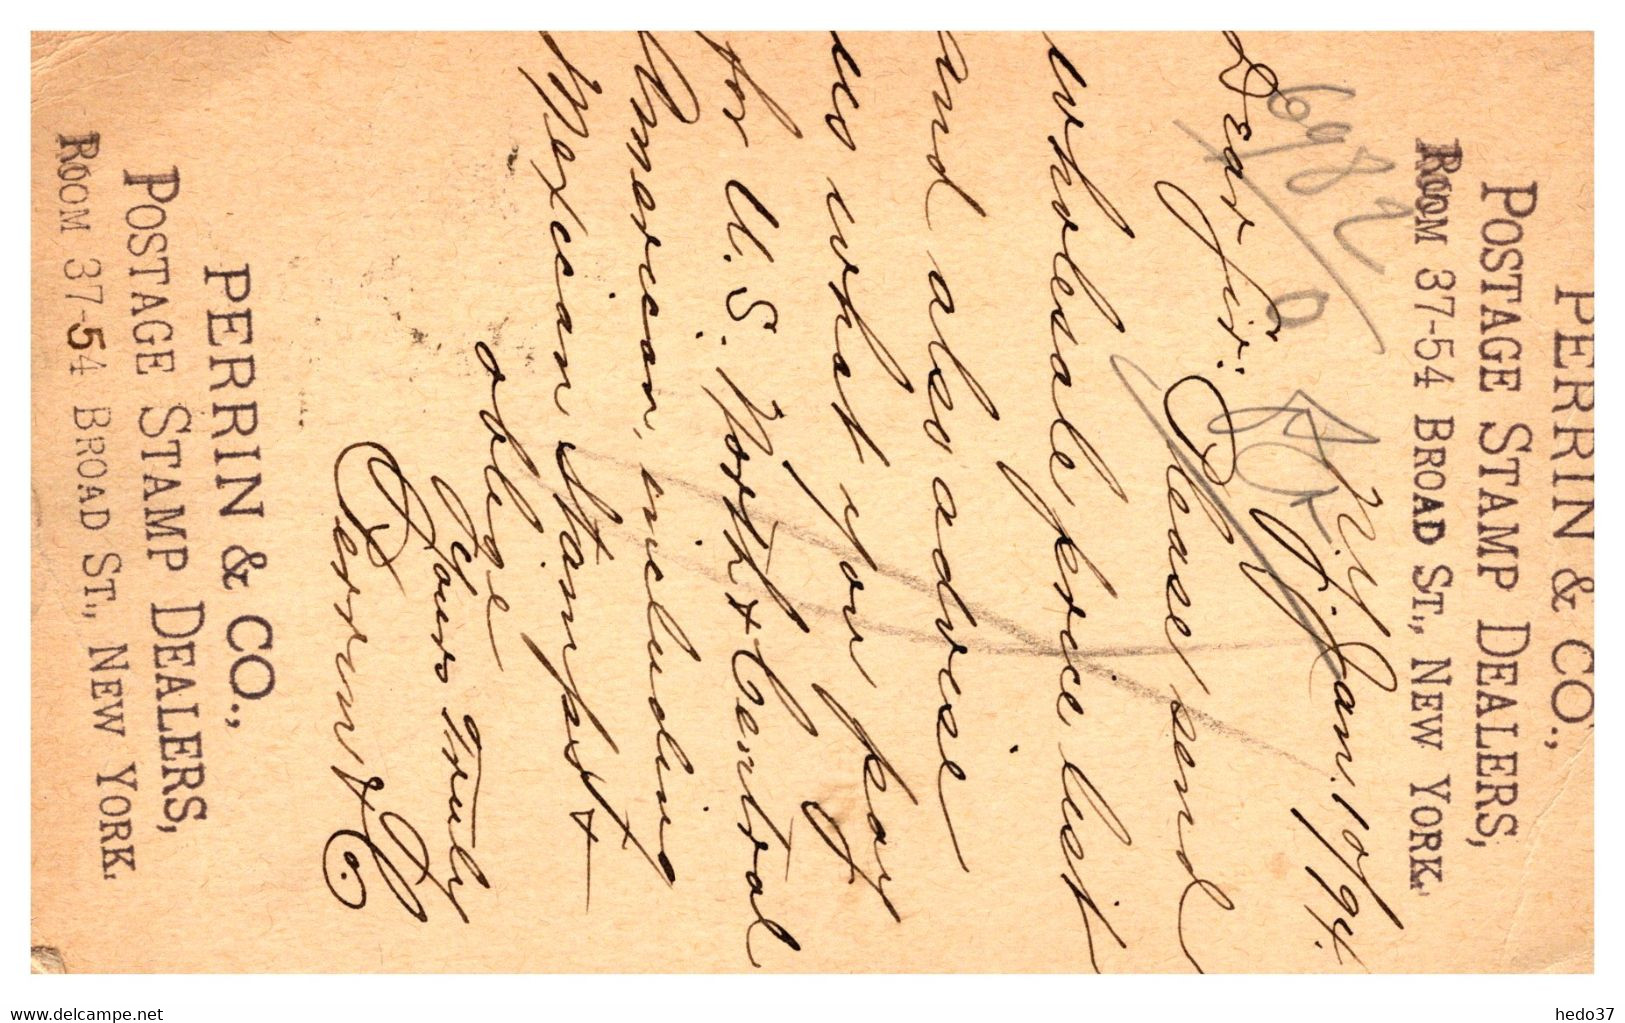 PERRIN & CO.,
POSTAGE STAMP DEALERS,
ROOM 37-54 BROAD ST., NEW YORK.
N.Y. Jan. 10/94.
6982
Dear Sir: Please send
wholesale price list
and also advise
us what you pay
for U.S. North & Central
American, including
Mexican Stamps &
oblige
Yours Truly
Perrin & Co.
PERRIN & CO.,
POSTAGE STAMP DEALERS,
ROOM 37-54 BROAD ST., NEW YORK.
www.delcampe.net
hedo37